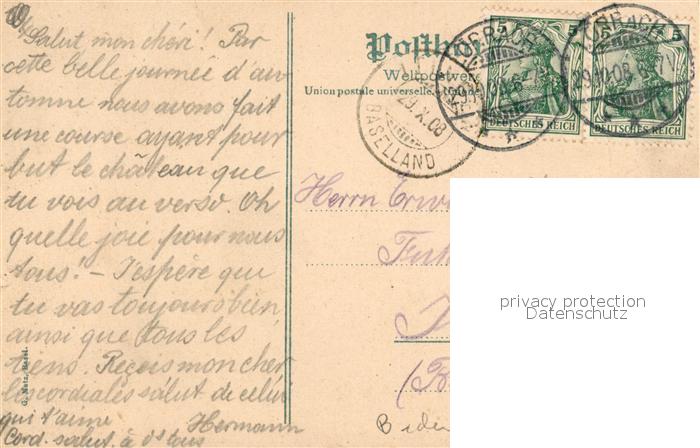 Salut, mon chéri! Par
cette belle journée d'au-
tomne nous avons fait
une course ayant pour
but le château que
tu vois au verso. Oh
quelle joie pour nous
tous! – J'espère que
tu vas toujours bien
ainsi que tous les
tiens. Reçois mon cher
les cordiales salut de celui
qui t'aime
Hermann
Cord. salut. à tous
G. Metz, Basel.
Postkar
Weltpostver
Union postale universelle.
5 5
5 5
DEUTSCHES REICH
DEUTSCHES REICH
LÖRRACH
LÖRRACH
29.10.08
29.X.08
BASELLAND
Herrn Erw
privacy protection
Datenschutz